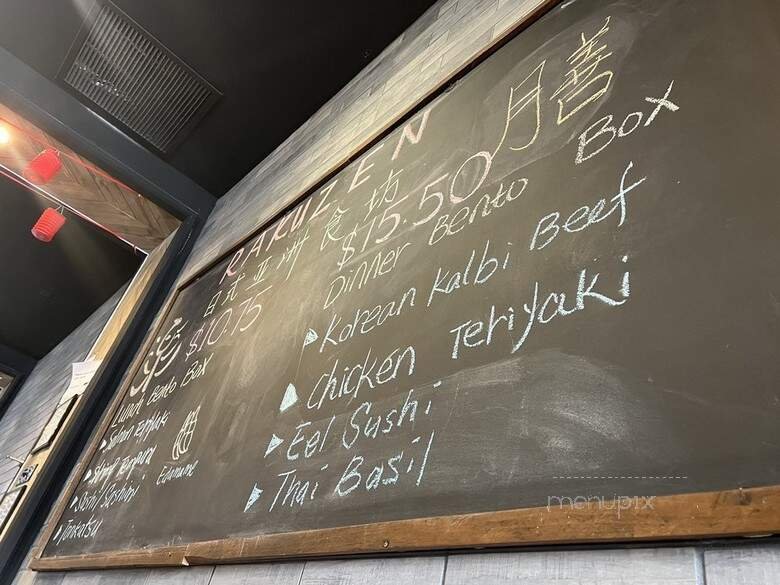 RAKUZEN
月善
日式亚州食坊
$10.75
Lunch Bento Box
Salmon Teriyaki
Shrimp Tempura
Sushi Sashimi
Tonkatsu
Edamame
$15.50
Dinner Bento Box
Korean Kalbi Beef
Chicken Teriyaki
Eel Sushi
Thai Basil
menupix